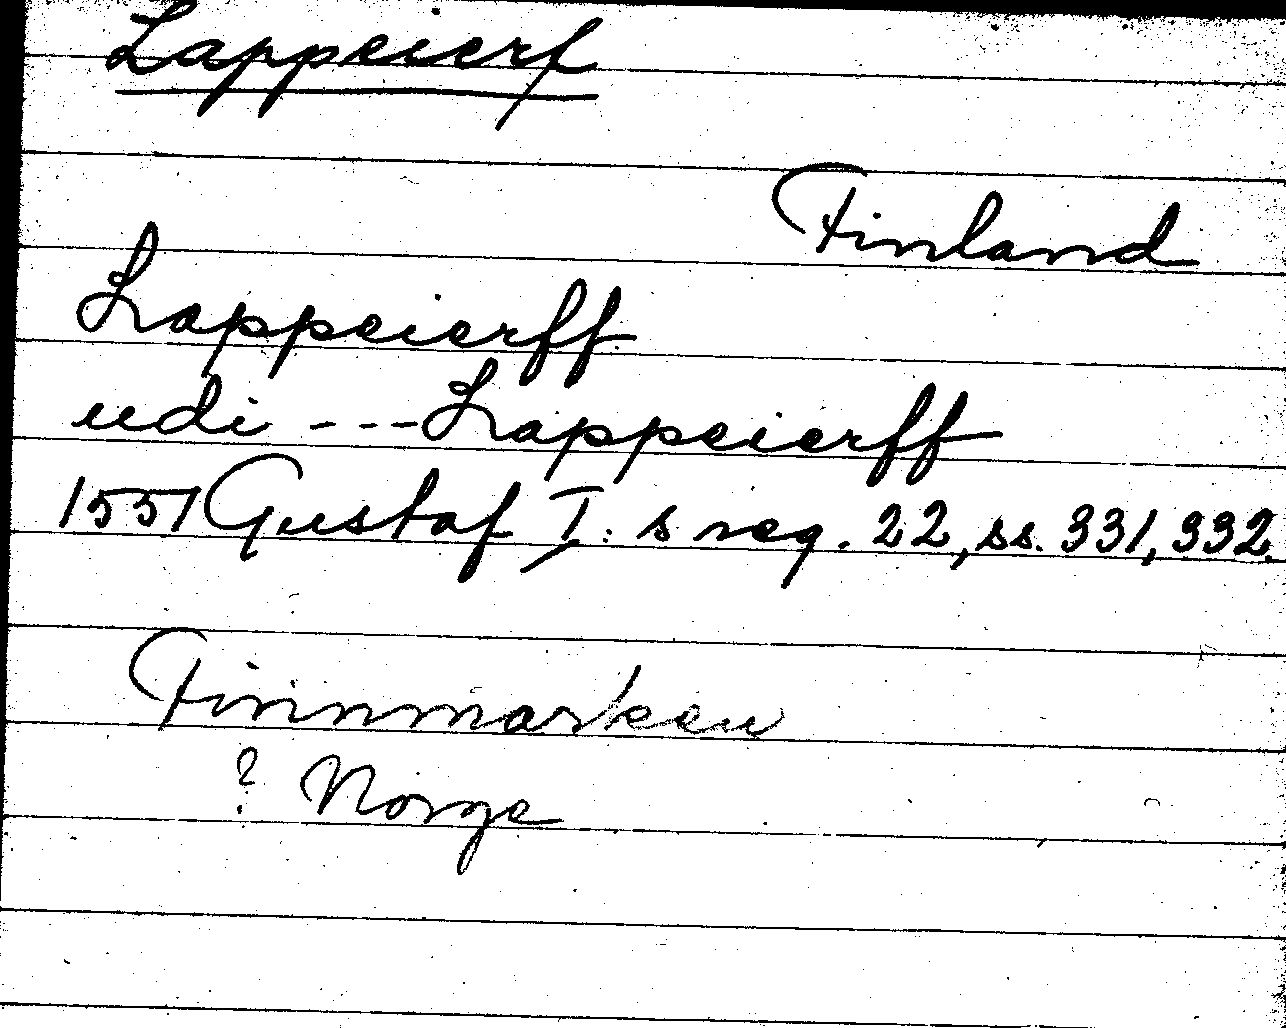 Lappeierf
Finland
Lappeierff
udi ---Lappeierff
1551 Gustaf I: s reg. 22, ss. 331, 332.
Finnmarken
? Norge